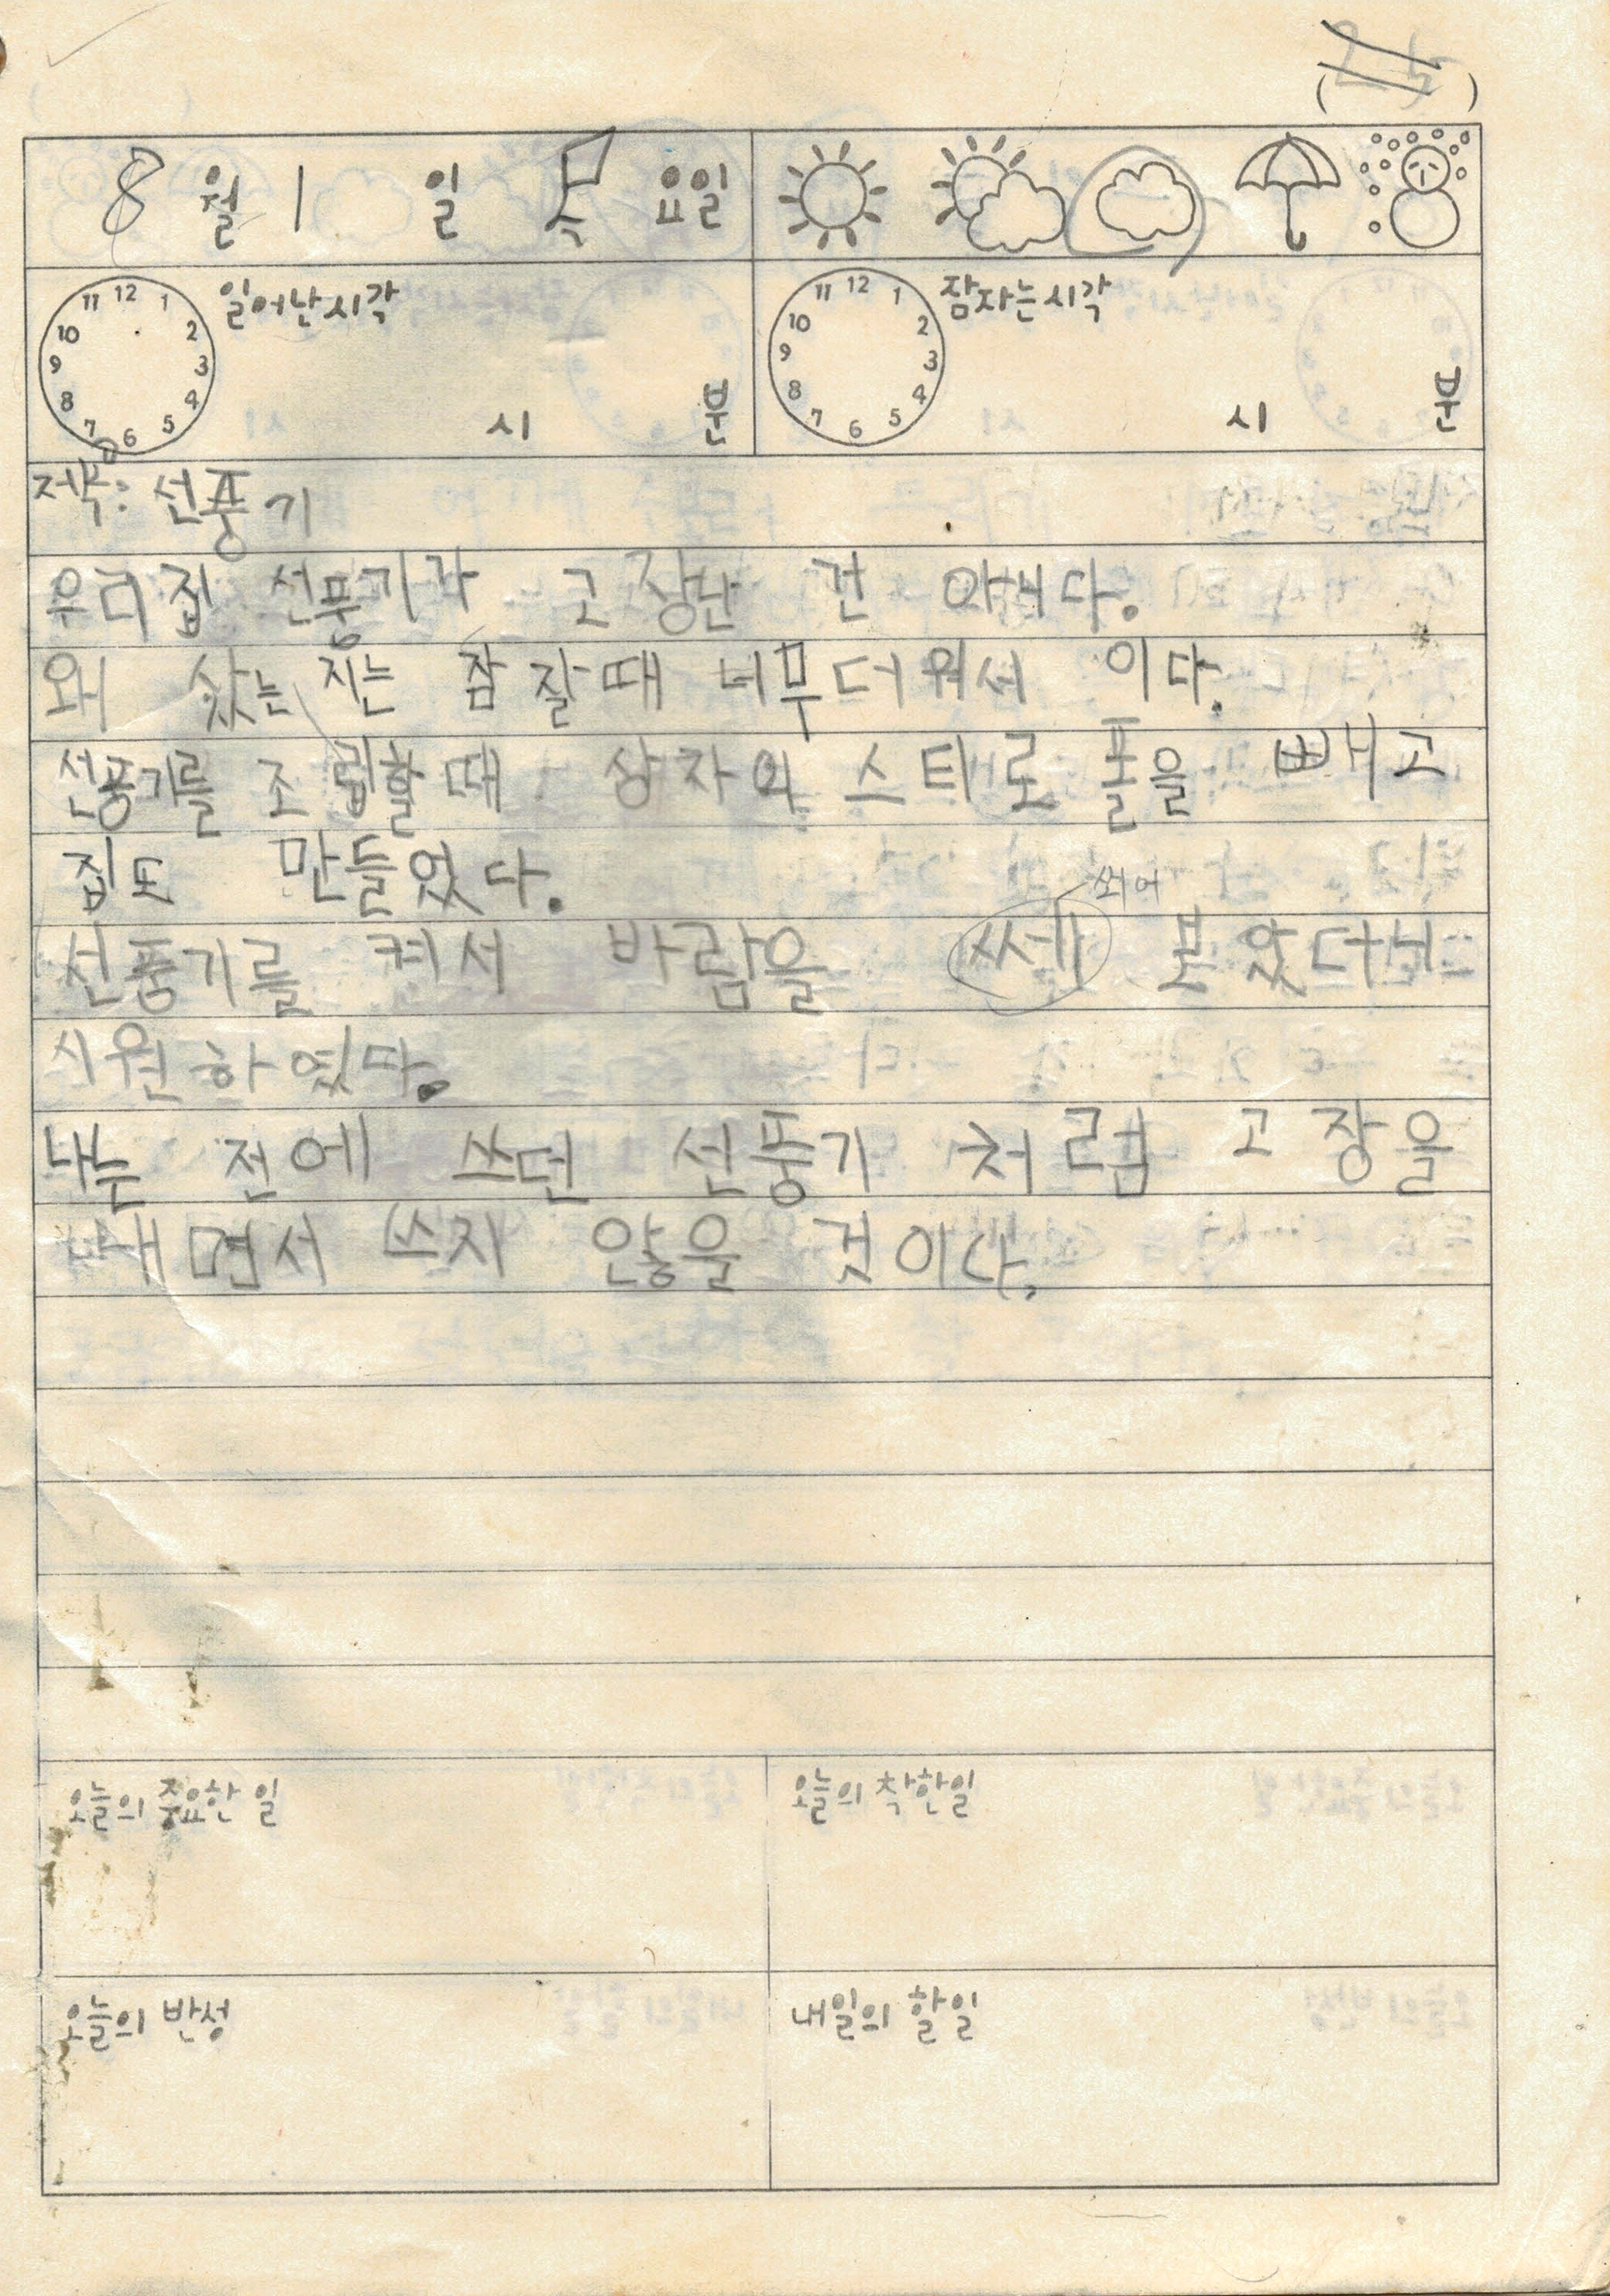 ( )
8 월 1 일 목 요일
12 1 2 3 4 5 6 7 8 9 10 11
일어난시각
시 분
12 1 2 3 4 5 6 7 8 9 10 11
잠자는시각
시 분
제목: 선풍기
우리집 선풍기가 고장난 건 아니다.
왜 샀는 지는 잠잘때 너무더워서 이다.
선풍기를 조립할때 상자와 스티로폴을 빼고
집도 만들었다.
쐬어
선풍기를 켜서 바람을 쎄 보았더니
시원하였다.
나는 전에 쓰던 선풍기 처럼 고장을
내면서 쓰지 않을 것이다.
오늘의 중요한 일
오늘의 착한일
오늘의 반성
내일의 할일